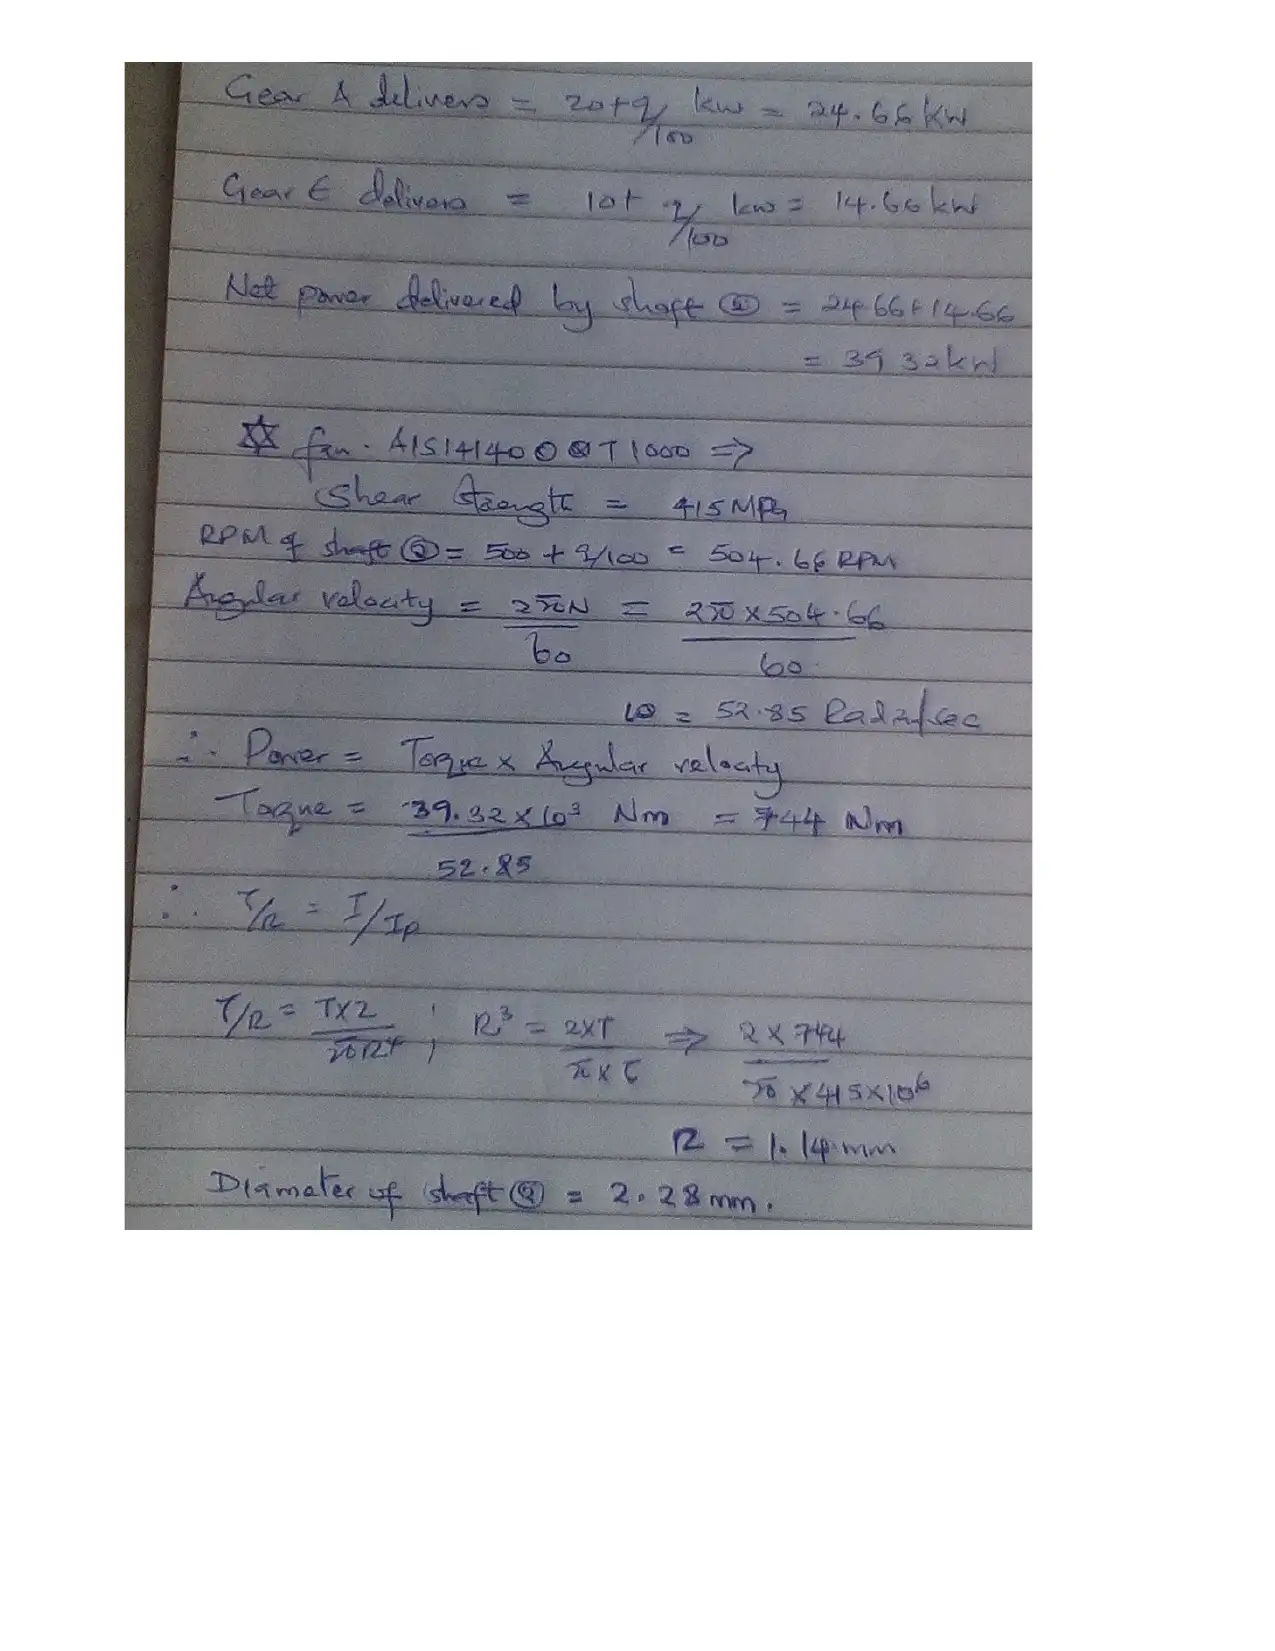 Gear A delivers = 20+q/100 kW = 24.66 kW
Gear E delivers = 10+ q/100 kW = 14.66 kW
Net power delivered by shaft ② = 24.66+14.66
= 39.32kW
fan. AISI 4140 O Q T 1000 ⇒
Shear Strength = 415 MPa
RPM of shaft ② = 500 + q/100 = 504.66 RPM
Angular velocity = 2πN/60 = 2π×504.66/60
ω = 52.85 Radn/sec
∴ Power = Torque × Angular velocity
Torque = 39.32×10³/52.85 Nm = 744 Nm
∴ τ/R = T/Ip
τ/R = T×2/πR⁴ ; R³ = 2×T/π×τ ⇒ 2×744/π×415×10⁶
R = 1.14 mm
Diameter of shaft ② = 2.28 mm.